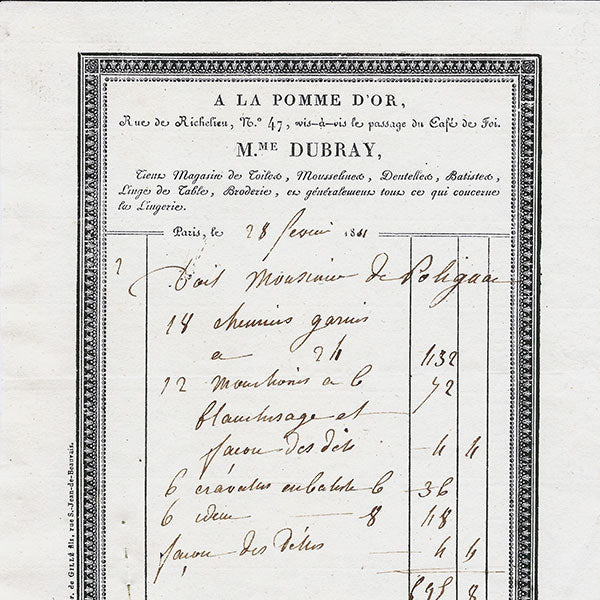 A LA POMME D'OR,
Rue de Richelieu, N.º 47, vis-à-vis le passage du Café de Foi.
M.ME DUBRAY,
Tient Magasin de Toiles, Mousselines, Dentelles, Batistes,
Linge de Table, Broderie, et généralement tous ce qui concerne
la Lingerie.
Paris, le 28 fevrier 1811
Doit Monsieur de Polignac
18 chemises garnis
a 24 432
12 mouchoirs a 6 72
blanchissage et
façon des dits 4 4
6 cravattes en batiste 6 36
6 idem 8 48
façon des dittes 4 4
8
de GILLÉ fils, rue S.-Jean-de-Beauvais.